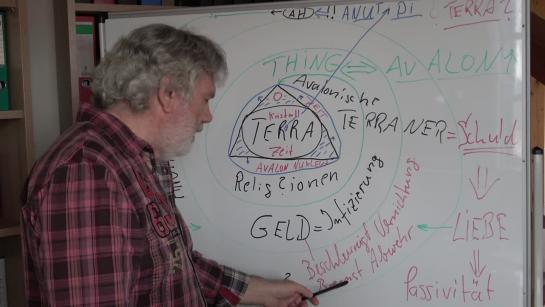 ←(AH)⇐!! ANUT DI (TERRA?
THING ⇔ AVALON↑
Avalonische
TERRANER = Schuld
Kristall
TERRA
Zeit
AVALON NUKLEUS
Relig?ionen
GELD = Infizierung
LIEBE
Beschleunigt Vernichtung
Abwehr
Passivität
?